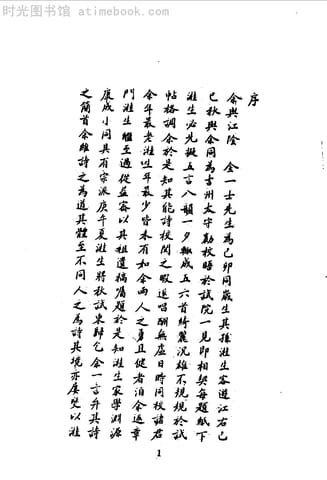 时光图书馆·atimebook.com
序
余與江陰 金一士先生為己卯同歲生其孫溎生客遊江右己
巳秋與余同為吉州太守勷校晤於試院一見即相契每題紙下
溎生必先擬五言八韻一夕輒成五六首綺麗沉雄不規規於試
帖格調余於是知其能詩校閱之暇遞唱酬無虛日時同校諸君
余年最老溎生年最少皆未有如余兩人之勇且健者洎余返章
門溎生繼至過從益密以其祖遺稿屬題於是知溎生家學淵源
康成小同具有宗派庚午夏溎生將秋試東歸乞余一言弁其詩
之簡首余維詩之為道其體至不同人之為詩其境亦屢變以溎
1